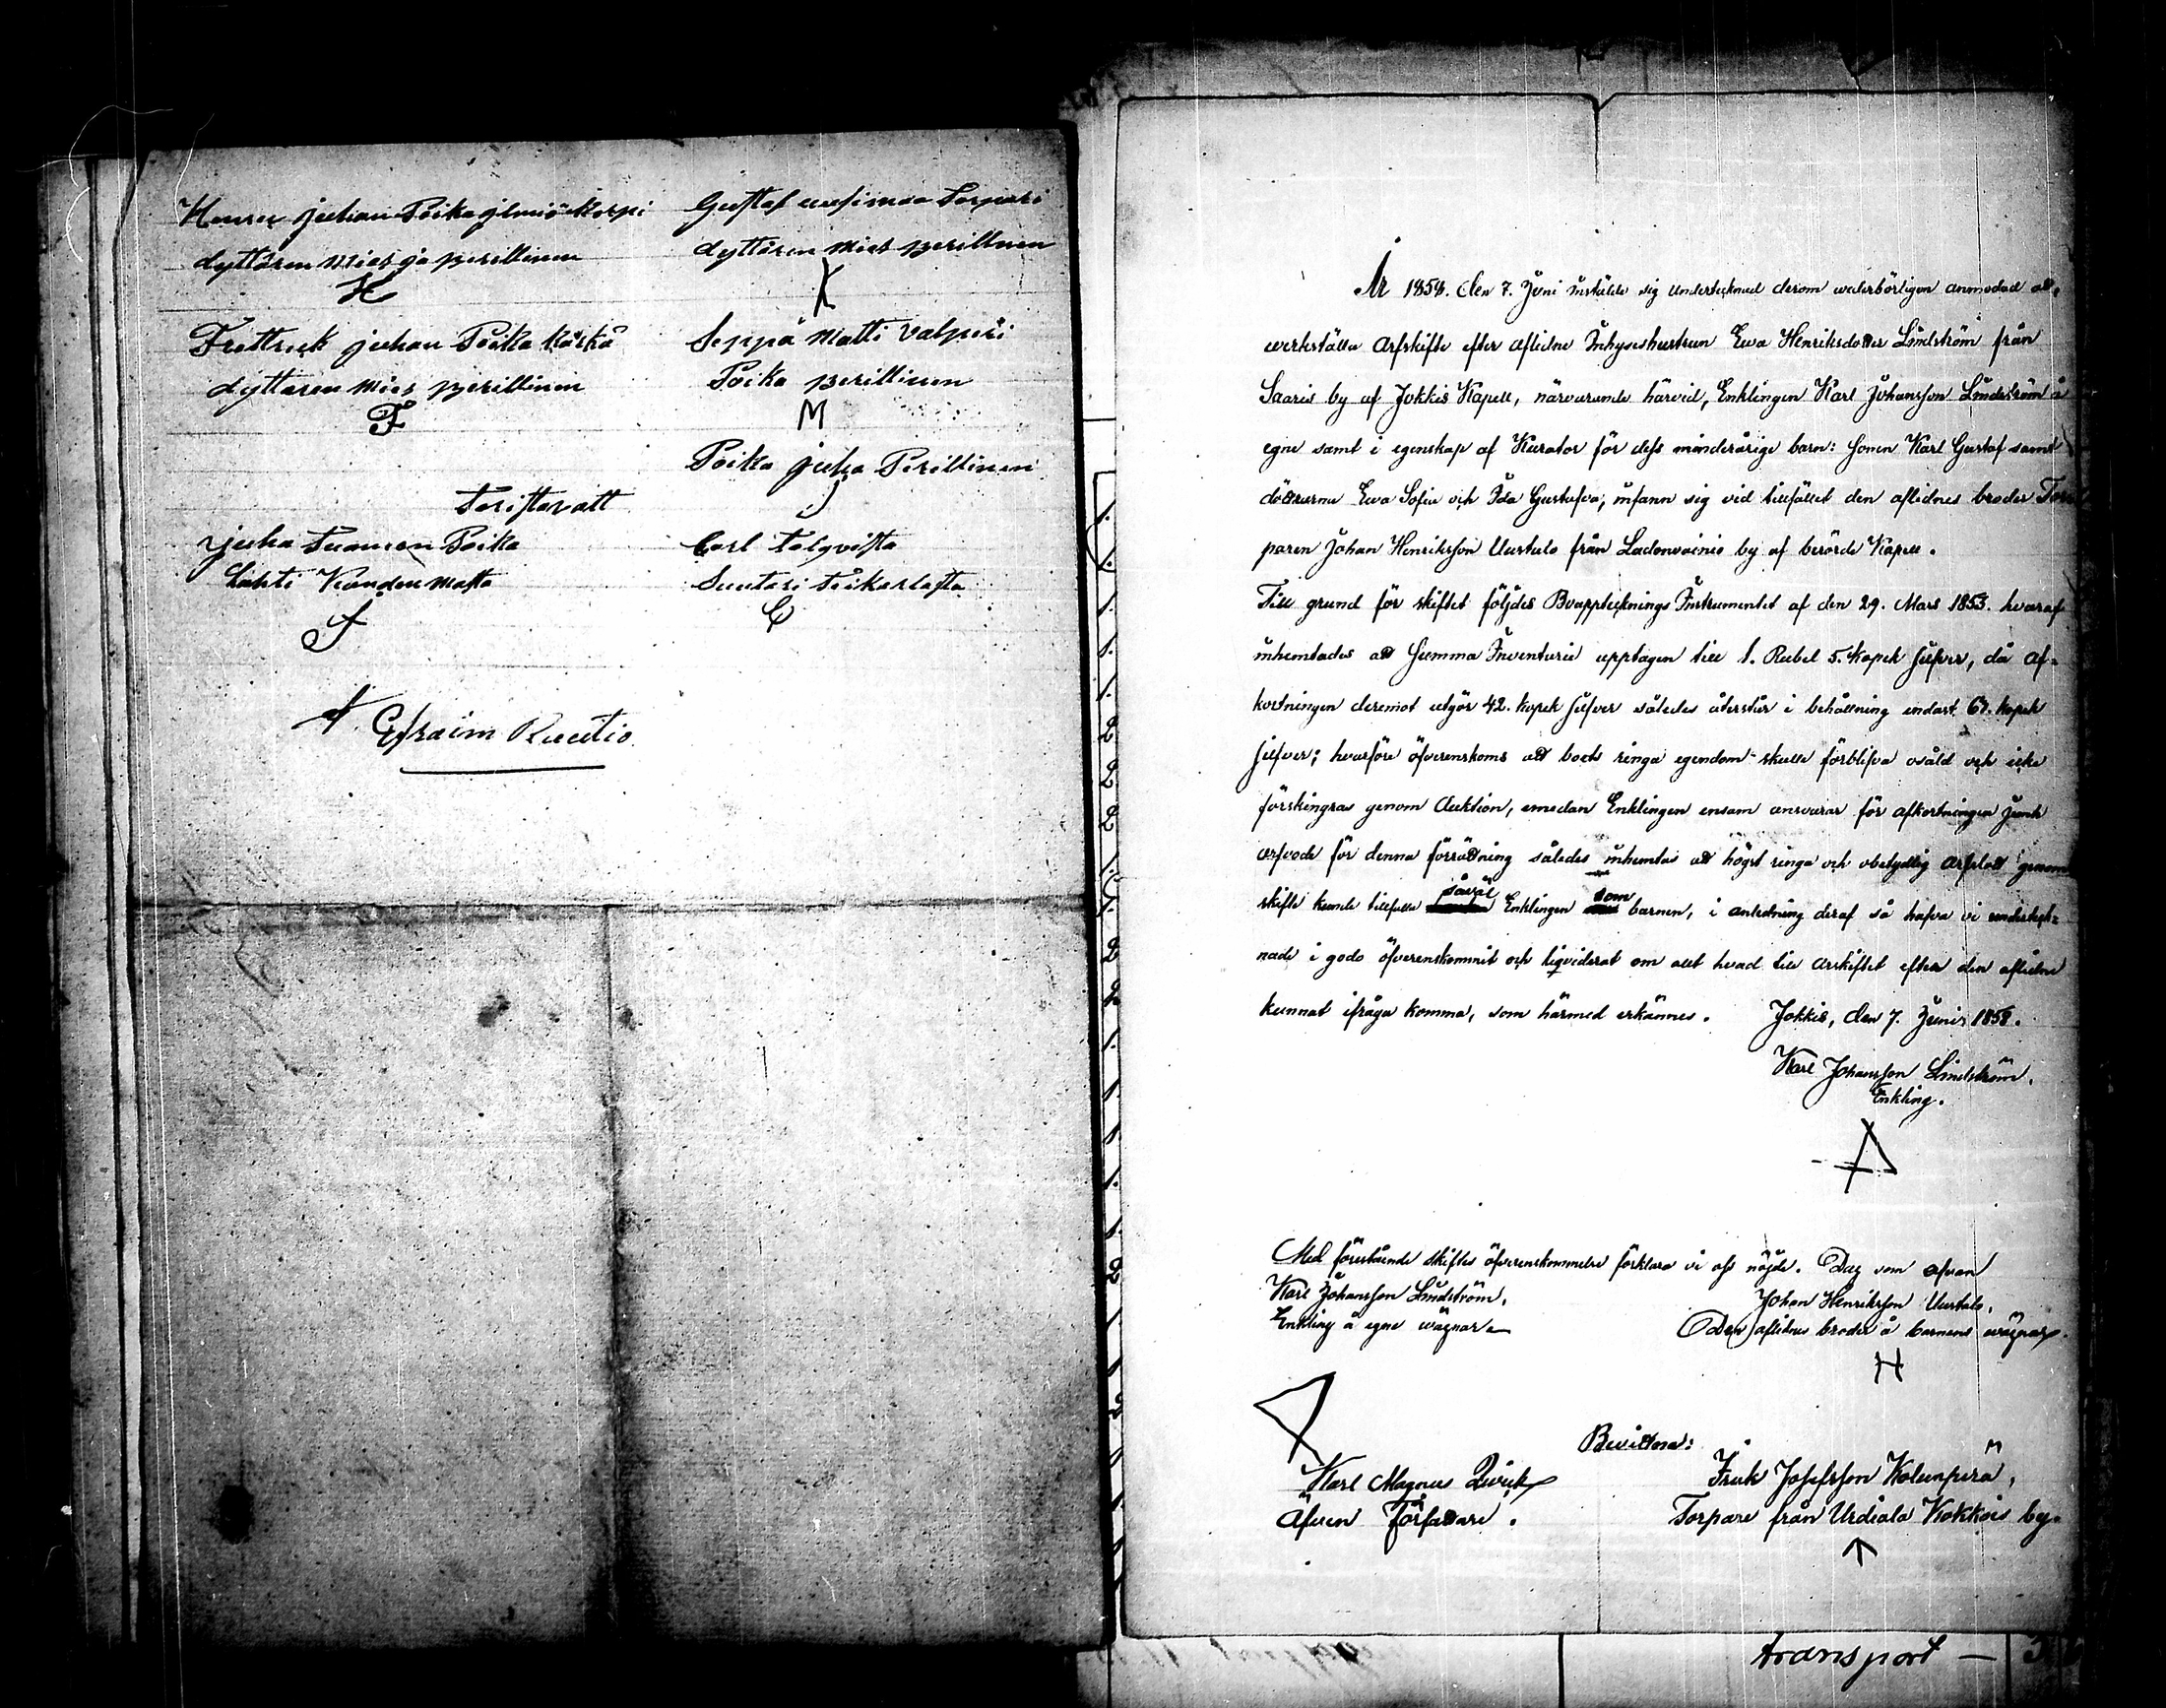 Henrik juhan Poika jlmiö korpi
dyttären Mies ja perillinen
H
Frettrick juhan Poika Kåskå
dyttaren Mies perillinen
F
Gustaf uusimaa Torpari
dyttären Mies perillnen
X
Seppä Matti Valpuri
Poika perillinen
M
Poika juha Perillinen
J
Teristavatt
juha Tuomen Poika
Lahti Kanden Masta
J
Carl Tålqvista
Suutari Tåikarlasta
C
Efraim Ruutio
År 1858. den 7. Juni instälde sig undertecknad derom wederbörligen anmodad att
werkställa Arfskifte efter aflidne Inhyseshustrun Ewa Henriksdotter Lindström från
Saaris by af Jokkis Kapell, närvarande härvid, Enklingen Karl Johansson Lindström å
egne samt i egenskap af Kurator för dess minderårige barn: Sonen Karl Gustaf samt
döttrarne Ewa Sofia och Ida Gustafva; infann sig vid tillfället den aflidnes broder Tor-
paren Johan Henriksson Uustalo från Ladonvainio by af berörde Kapell.
Till grund för skiftet följdes Boupptecknings Instrumentet af den 29. Mars 1853. hvaraf
inhemtades att Summa Inventarie upptagen till 1. Rubel 5. Kopek silfver, då Af-
kortningen deremot utgör 42. kopek silfver således återstår i behållning endast 63. kopek
silfver; hvarföre öfverenskoms att boets ringa egendom skulle förblifva osåld och icke
förskingras genom Auktion, emedan Enklingen ensam ansvarar för afkortningen jemte
arfvode för denna förrättning således inhemtas att högst ringa och obetydlig Arfslott genom
skifte kunde tillfalla såväl Enklingen som barnen, i anledning deraf så hafva vi underteck-
nade i godo öfverenskommit och liqviderat om allt hvad till Arfskiftet efter den aflidne
kunnat ifråga komma, som härmed erkännes. Jokkis, den 7. Junii 1858.
Karl Johansson Lindström.
Enkling.
Med förestående skiftes öfverenskommelse förklara vi oss nöjde. Dag som ofvan
Karl Johansson Lindström,
Enkling å egne wägnar
Johan Henriksson Uustalo,
Den aflidnes broder å barnens wägnar.
H
Bevittna:
Karl Magnus Qvick
Äfven Författare.
Isak Josefsson Kolunperä,
Torpare från Urdiala Kokkois by.
transport —